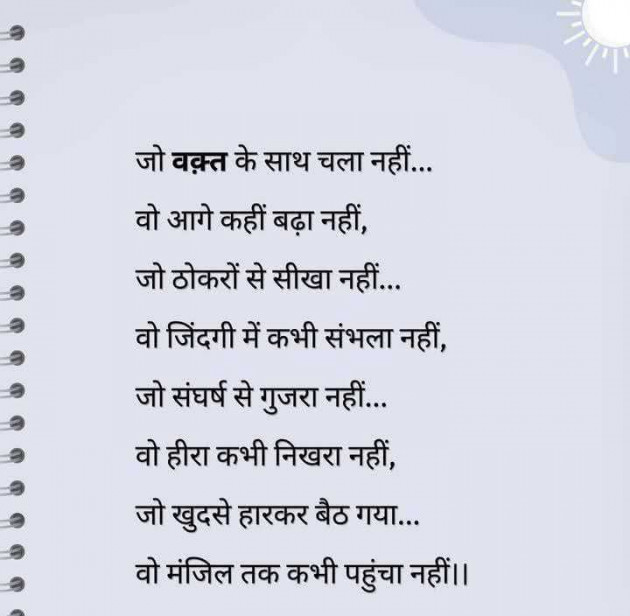 जो वक़्त के साथ चला नहीं...
वो आगे कहीं बढ़ा नहीं,
जो ठोकरों से सीखा नहीं...
वो जिंदगी में कभी संभला नहीं,
जो संघर्ष से गुजरा नहीं...
वो हीरा कभी निखरा नहीं,
जो खुदसे हारकर बैठ गया...
वो मंजिल तक कभी पहुंचा नहीं।।